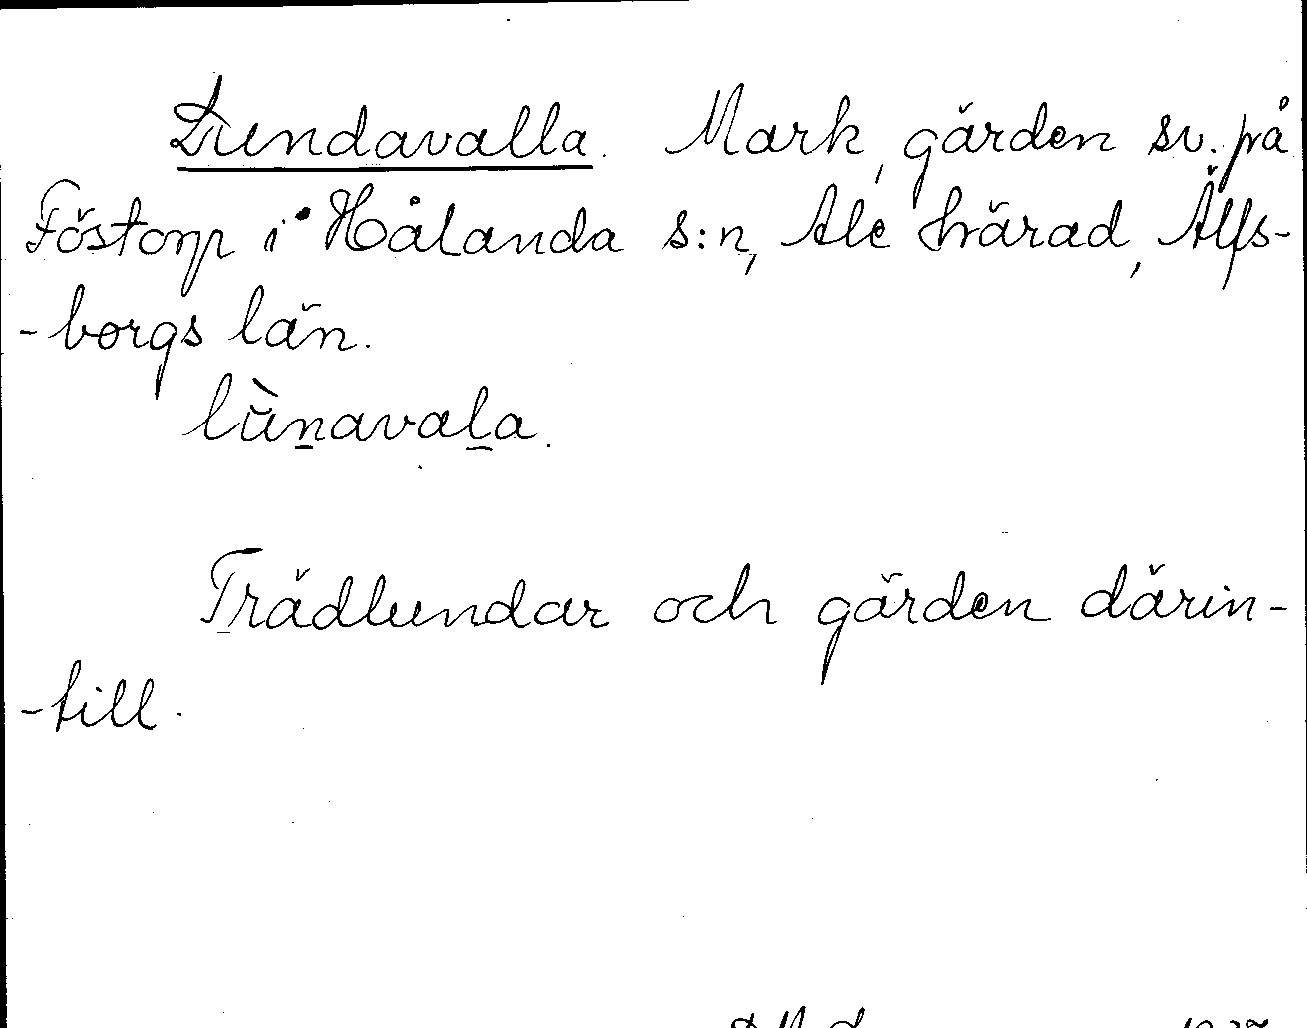 Lundavalla. Mark, gärden sv. på
Föstorp i Hålanda s:n, Ale härad, Älfs-
-borgs län.
lùn̲aval̲a.
Trädlundar och gärden därin-
-till.